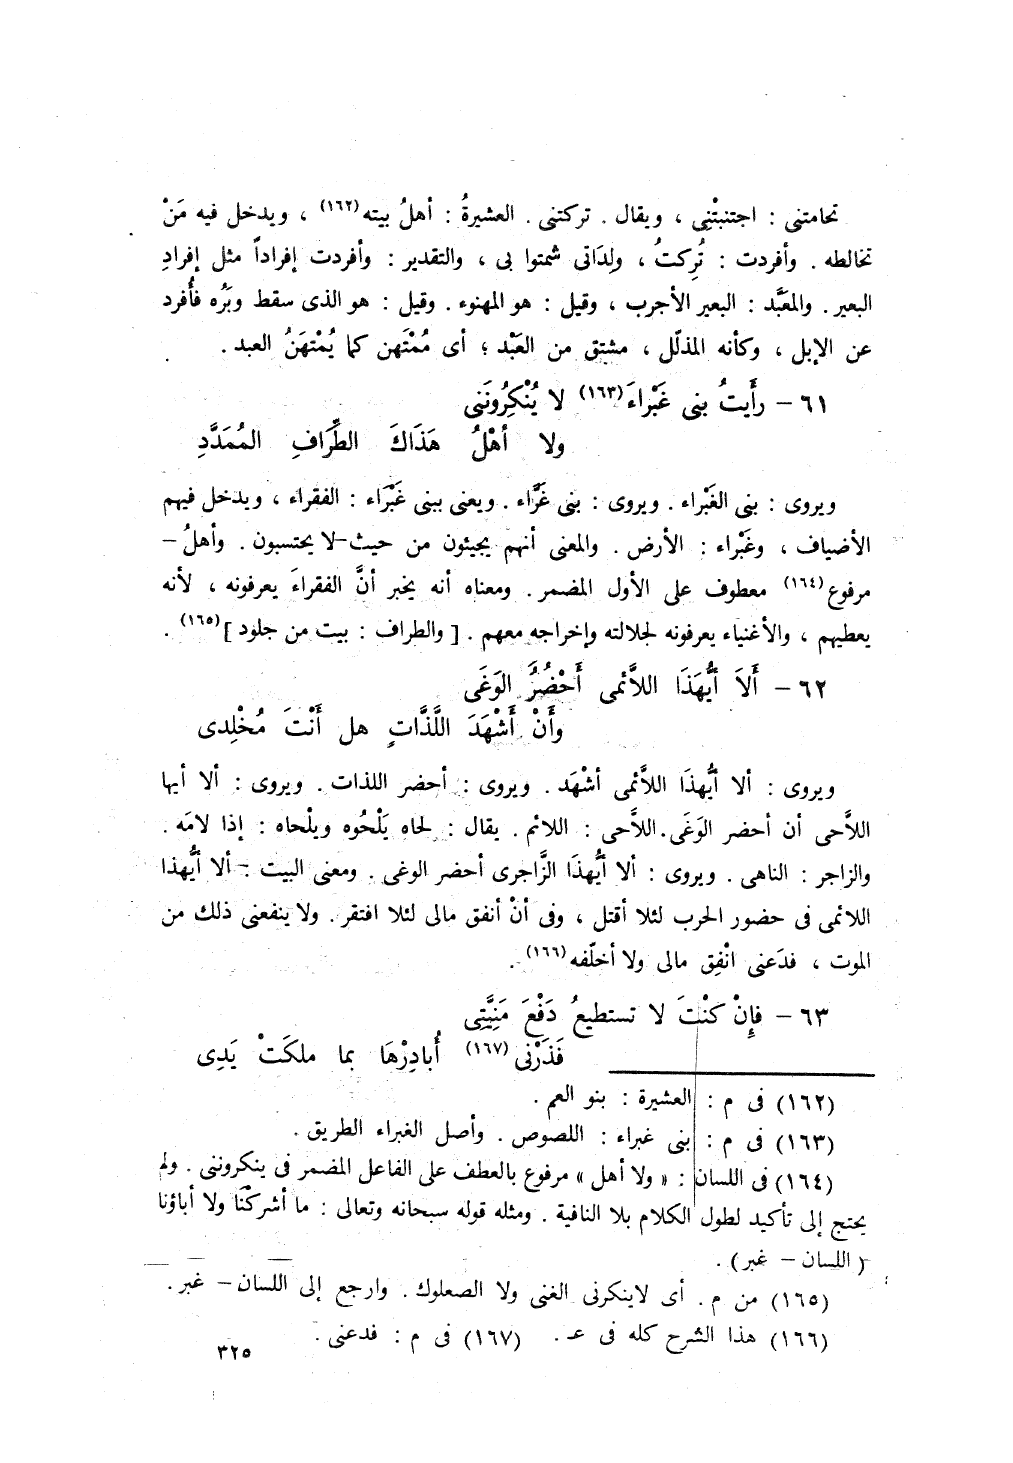 تحامتنى : اجتنبتْنِى ، ويقال . تركتنى . العشيرةُ : أهلُ بيته (١٦٢) ، ويدخل فيه مَنْ
تخالطه . وأفردت : تُرِكتُ ، ولِدَاتى شمتوا بى ، والتقدير : وأفردت إفراداً مثل إفرادِ
البعير . والمعَبَّد : البعير الأجرب ، وقيل : هو المهنوء . وقيل : هو الذى سقط وبَرُه فأُفرد
عن الإبل ، وكأنه المذلّل ، مشتق من العَبْد ؛ أى مُمْتَهن كما يُمْتهَنُ العبد .
٦١ – رأَيتُ بنى غَبْراءَ (١٦٣) لا يُنْكِرُونَنى
ولا أهْلُ هَذَاكَ الطِّرَافِ المُمَدَّدِ
ويروى : بنى الغَبْراء . ويروى : بنى غَرَّاء . ويعنى ببنى غَبْرَاء : الفقراء ، ويدخل فيهم
الأضياف ، وغَبْراء : الأرض . والمعنى أنهم يجيئون من حيث لا يحتسبون . وأهلُ –
مرفوع (١٦٤) معطوف على الأول المضمر . ومعناه أنه يخبر أنَّ الفقراءَ يعرفونه ، لأنه
يعطيهم ، والأغنياء يعرفونه لجلالته وإخراجه معهم . [ والطراف : بيت من جلود ] (١٦٥) .
٦٢ – أَلاَ أَيُّهَذَا اللاَّئمى أَحْضُرُ الوَغَى
وأَنْ أَشْهَدَ اللَّذَّاتِ هل أَنْتَ مُخْلِدى
ويروى : ألا أيُّهذَا اللاَّئمى أشْهَد . ويروى : أحضر اللذات . ويروى : ألا أيها
اللاَّحى أن أحضر الوَغَى . اللاَّحى : اللائم . يقال : لحاه يَلْحُوه ويلْحاه : إذا لامَه .
والزاجر : الناهى . ويروى : ألا أيُّهذَا الزَّاجرى أحضر الوغى . ومعنى البيت : ألا أيُّهذا
اللائمى فى حضور الحرب لئلا أقتل ، وفى أنْ أنفق مالى لئلا افتقر . ولا ينفعنى ذلك من
الموت ، فدَعنى انْفِق مالى ولا أخلّفه (١٦٦) .
٦٣ – فإِنْ كنْتَ لا تستطيعُ دَفْعَ مَنِيَّتِى
فَذَرْنى (١٦٧) أُبادِرْهَا بما ملكَتْ يَدِى
(١٦٢) فى م : العشيرة : بنو العم .
(١٦٣) فى م : بنى غبراء : اللصوص . وأصل الغبراء الطريق .
(١٦٤) فى اللسان : « ولا أهل » مرفوع بالعطف على الفاعل المضمر فى ينكروننى . ولم
يحتج إلى تأكيد لطول الكلام بلا النافية . ومثله قوله سبحانه وتعالى : ما أشركْنا ولا أباؤنا
( اللسان – غبر ) .
(١٦٥) من م . أى لاينكرنى الغنى ولا الصعلوك . وارجع إلى اللسان – غبر .
(١٦٦) هذا الشرح كله فى عـ . (١٦٧) فى م : فدعنى .
٣٢٥